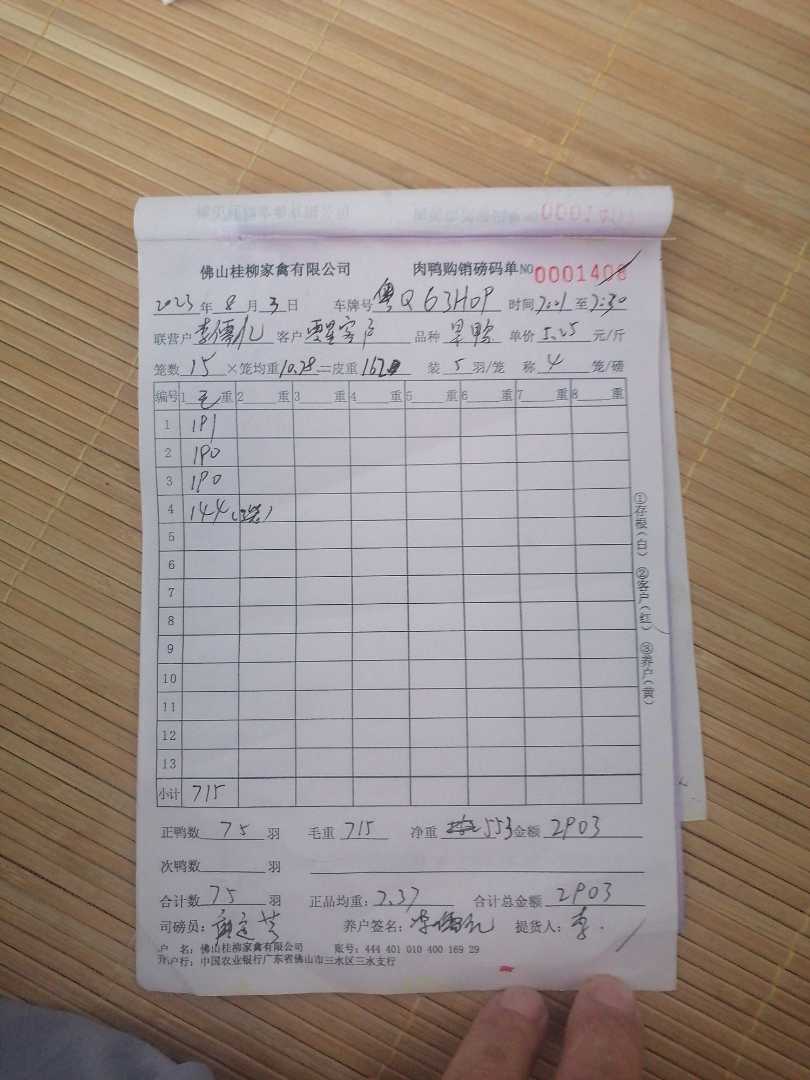 佛山桂柳家禽有限公司 肉鸭购销磅码单 NO 0001408
2023年8月3日 车牌号 粤Q63H0P 时间 7:01 至 7:30
联营户 李 客户 零星客户 品种 旱鸭 单价 5.25 元/斤
笼数 15 ×笼均重 10.78 =皮重 162 装 5 羽/笼 称 4 笼/磅
编号 1 毛 重 2 重 3 重 4 重 5 重 6 重 7 重 8 重
1 191
2 190
3 190
4 144
5
6
7
8
9
10
11
12
13
小计 715
①存根(白) ②客户(红) ③养户(黄)
正鸭数 75 羽 毛重 715 净重 553 金额 2903
次鸭数 羽
合计数 75 羽 正品均重: 7.37 合计总金额 2903
司磅员: 养户签名: 李 提货人: 李
户 名: 佛山桂柳家禽有限公司 账号: 444 401 010 400 169 29
开户行: 中国农业银行广东省佛山市三水区三水支行